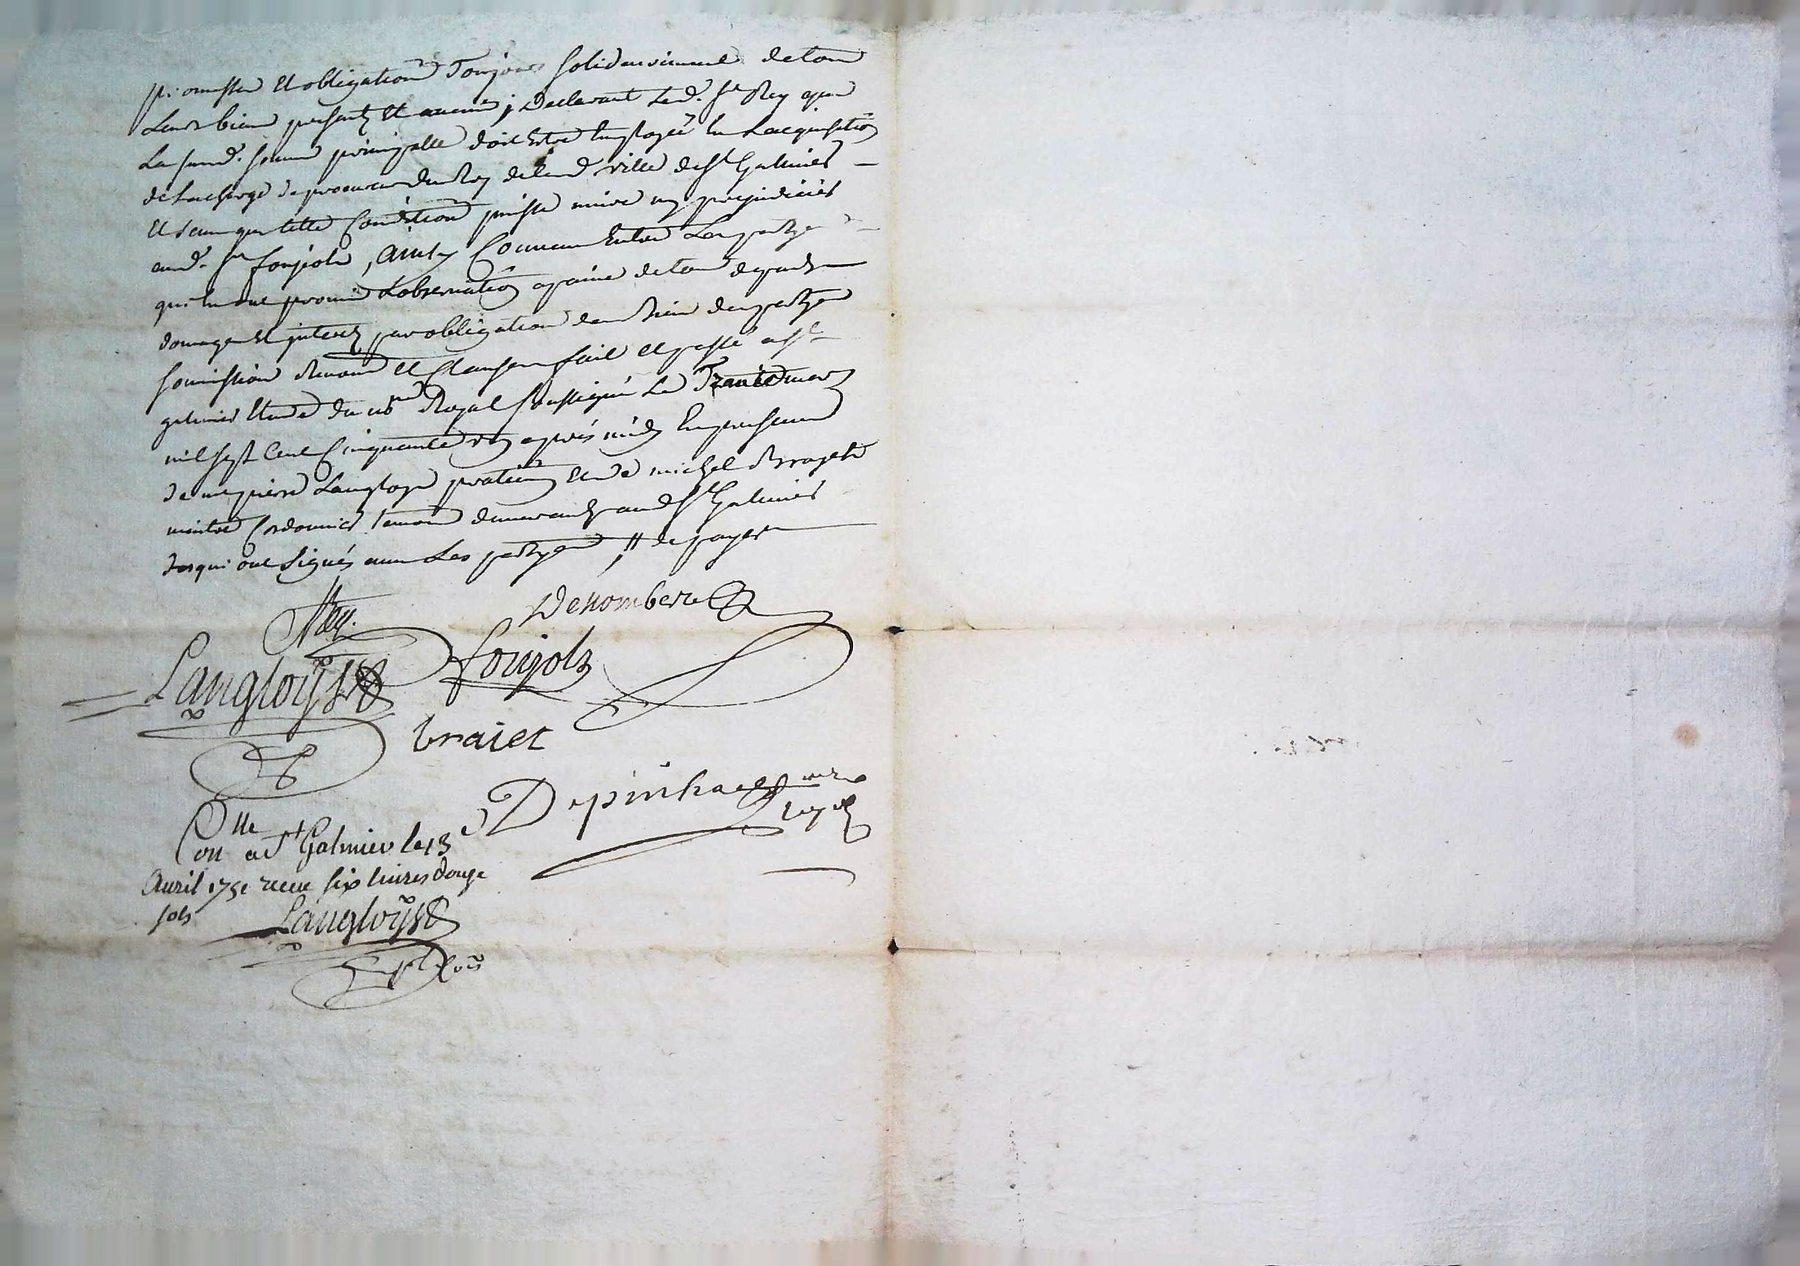 promesse et obligation toujours solidairement de tous
leurs biens presents et avenir, declarant led. Sr Rey que
la susd. somme principalle doit estre employée en lacquisition
de la charge de procureur du Roy de lad. ville de St Galmier
et sans que cette condition puisse nuire ny prejudicier
aud. Sr foujols, ainsy convenu entre les partyes
qui en ont promis lobservation a paine de tous depends
domages et interets par obligation de biens des partyes
soumission renon et clauses fait et passé a St
galmier etude du nre Royal soussigné le trente mars
mil sept cent cinquante un après midy En presence
de me pierre Langloys praticien et de michel Brayet
maitre cordonnier temoins demeurants aud St Galmier
les qui ont signés avec les partyes // de payer
Rey.
Denombere
Langloÿs
foujols
braiet
Depinhac nre
royal
Conlle a St Galmier le 13e
Avril 1751 receu six livres douze
sols
Langloÿs